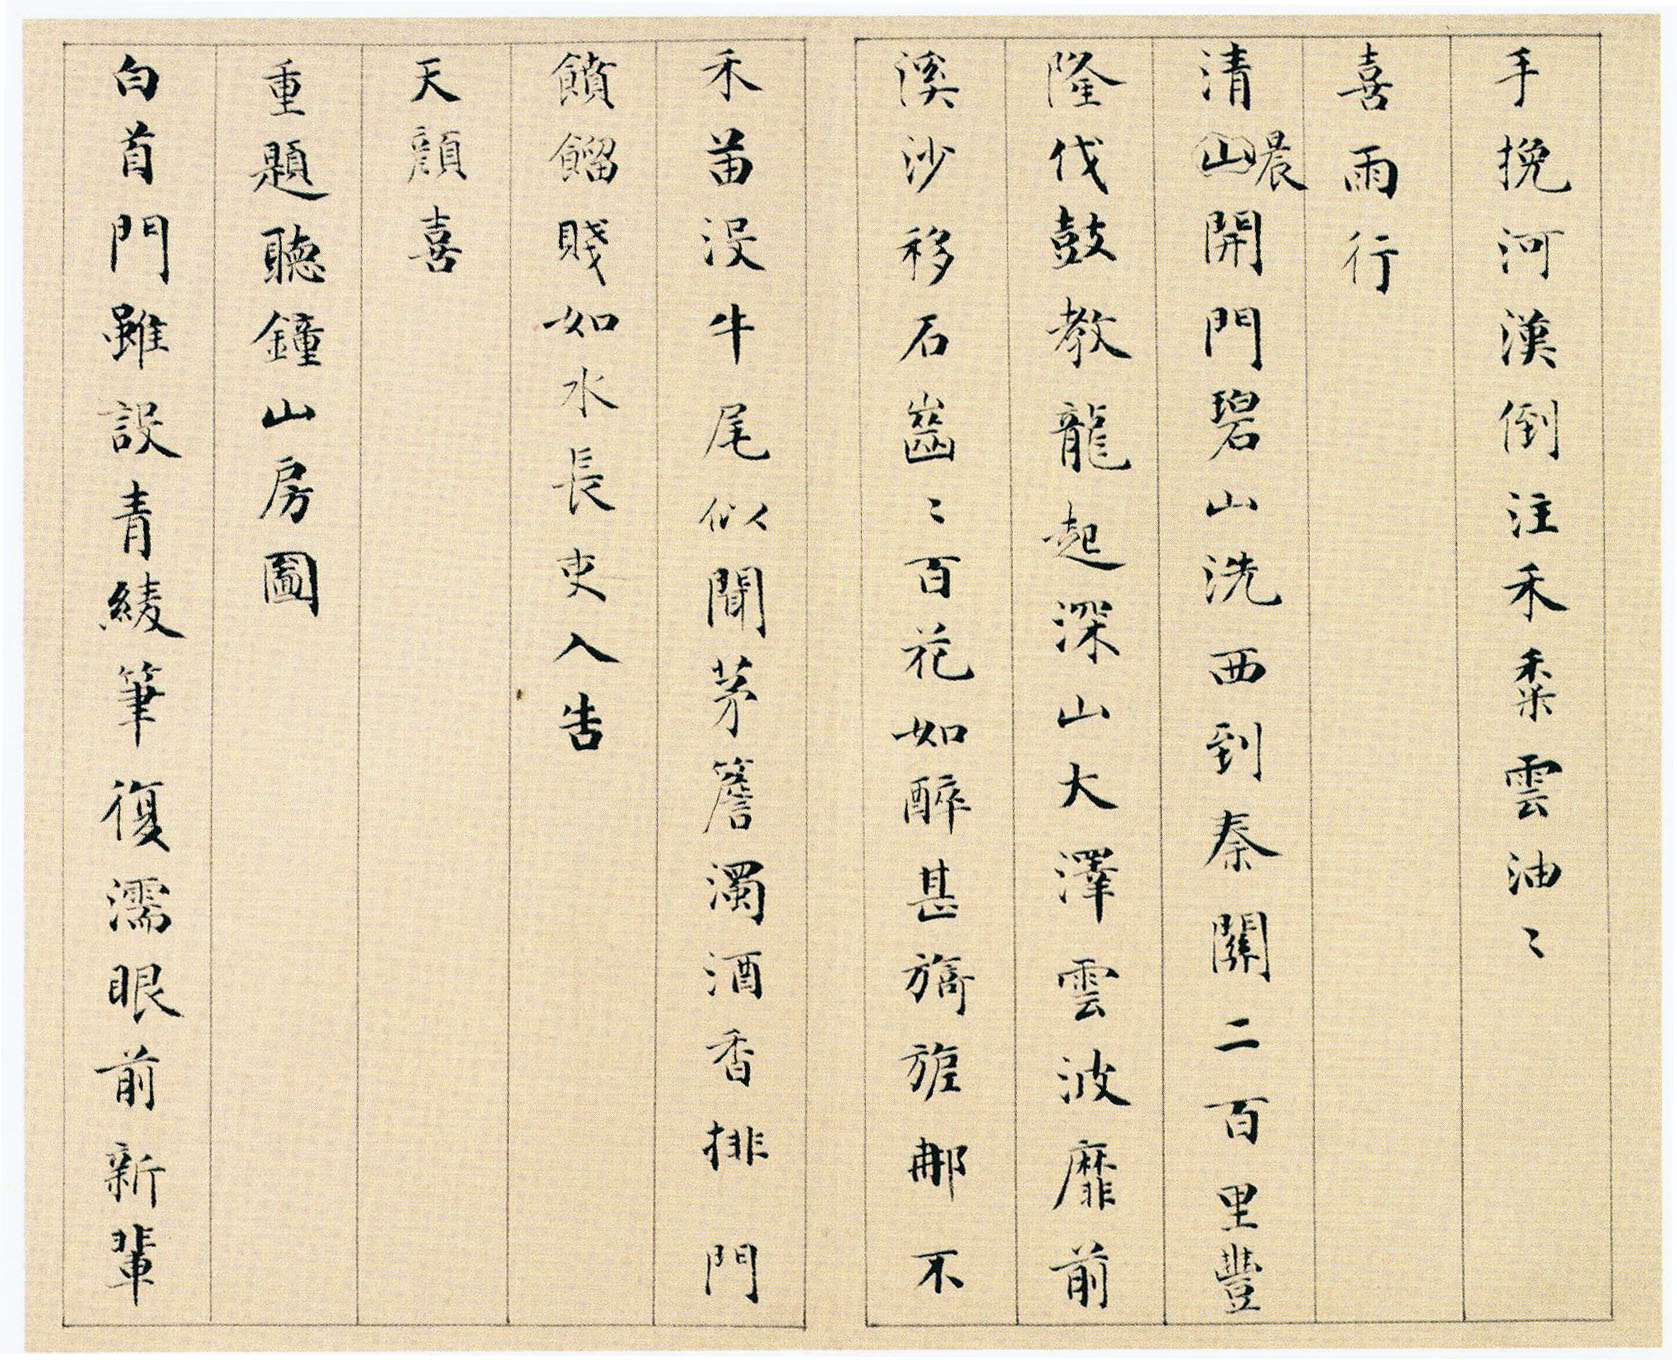 手挽河漢倒注禾黍雲油〻
喜雨行
清山晨開門碧山洗西到秦關二百里豐
隆伐鼓教龍起深山大澤雲波靡前
溪沙移石齒〻百花如醉甚旖旎那不
禾苗没牛尾似聞茅簷濁酒香排門
饙餾賤如水長吏入告
天顔喜
重題聽鐘山房圖
白首門雖設青綾筆復濡眼前新輩